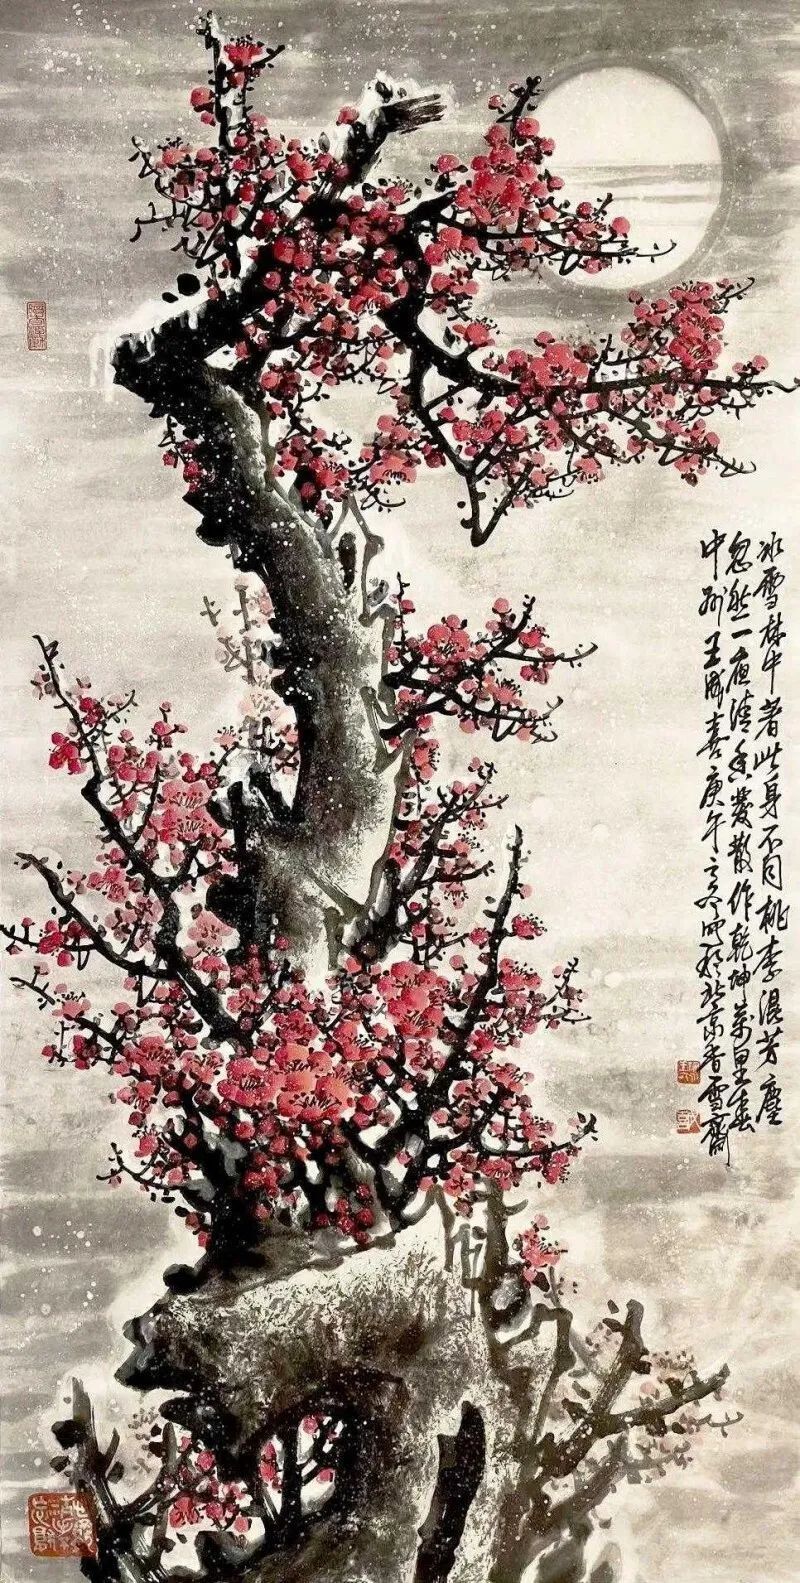 冰雪林中著此身不同桃李混芳塵
忽然一夜清香發散作乾坤萬里春
中州王成喜庚午於北京香雪齋